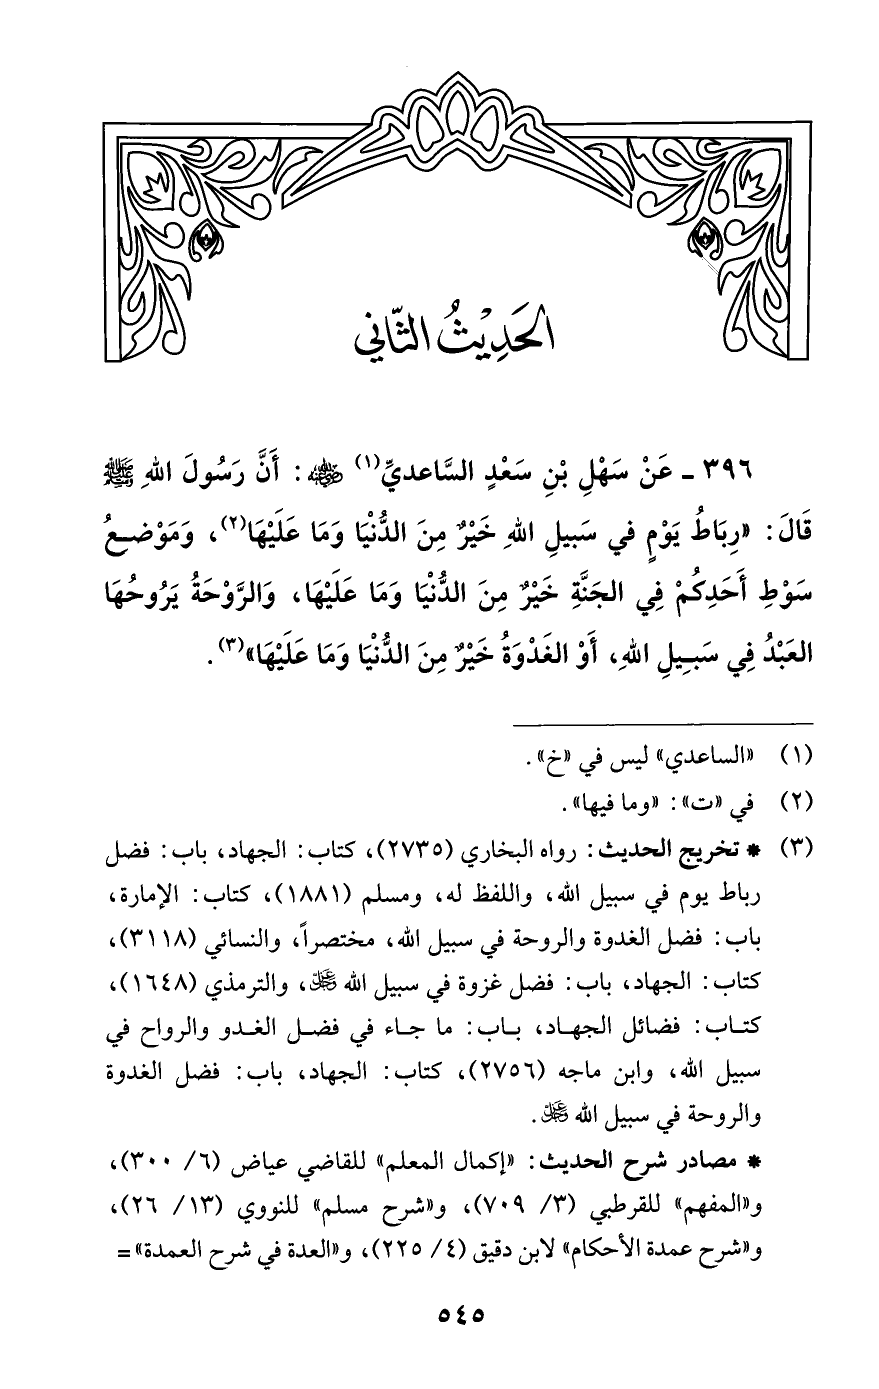 الحَدِيْثُ الثَّاني
٣٩٦ ـ عَنْ سَهْلِ بْنِ سَعْدٍ السَّاعديِّ(١) ﷺ: أَنَّ رَسُولَ اللهِ ﷺ
قَالَ: «رِبَاطُ يَوْمٍ في سَبيلِ اللهِ خَيْرٌ مِنَ الدُّنْيَا وَمَا عَلَيْهَا(٢)، وَمَوْضعُ
سَوْطِ أَحَدِكُمْ فِي الجَنَّةِ خَيْرٌ مِنَ الدُّنْيَا وَمَا عَلَيْهَا، وَالرَّوْحَةُ يَرُوحُهَا
العَبْدُ فِي سَبِيلِ اللهِ، أَوْ الغَدْوَةُ خَيْرٌ مِنَ الدُّنْيَا وَمَا عَلَيْهَا»(٣).
(١) «الساعدي» ليس في «خ».
(٢) في «ت»: «وما فيها».
(٣) * تخريج الحديث: رواه البخاري (٢٧٣٥)، كتاب: الجهاد، باب: فضل
رباط يوم في سبيل الله، واللفظ له، ومسلم (١٨٨١)، كتاب: الإمارة،
باب: فضل الغدوة والروحة في سبيل الله، مختصراً، والنسائي (٣١١٨)،
كتاب: الجهاد، باب: فضل غزوة في سبيل الله ﷿، والترمذي (١٦٤٨)،
كتاب: فضائل الجهاد، باب: ما جاء في فضل الغدو والرواح في
سبيل الله، وابن ماجه (٢٧٥٦)، كتاب: الجهاد، باب: فضل الغدوة
والروحة في سبيل الله ﷿.
* مصادر شرح الحديث: «إكمال المعلم» للقاضي عياض (٦/ ٣٠٠)،
و«المفهم» للقرطبي (٣/ ٧٠٩)، و«شرح مسلم» للنووي (١٣/ ٢٦)،
و«شرح عمدة الأحكام» لابن دقيق (٤/ ٢٢٥)، و«العدة في شرح العمدة» =
٥٤٥